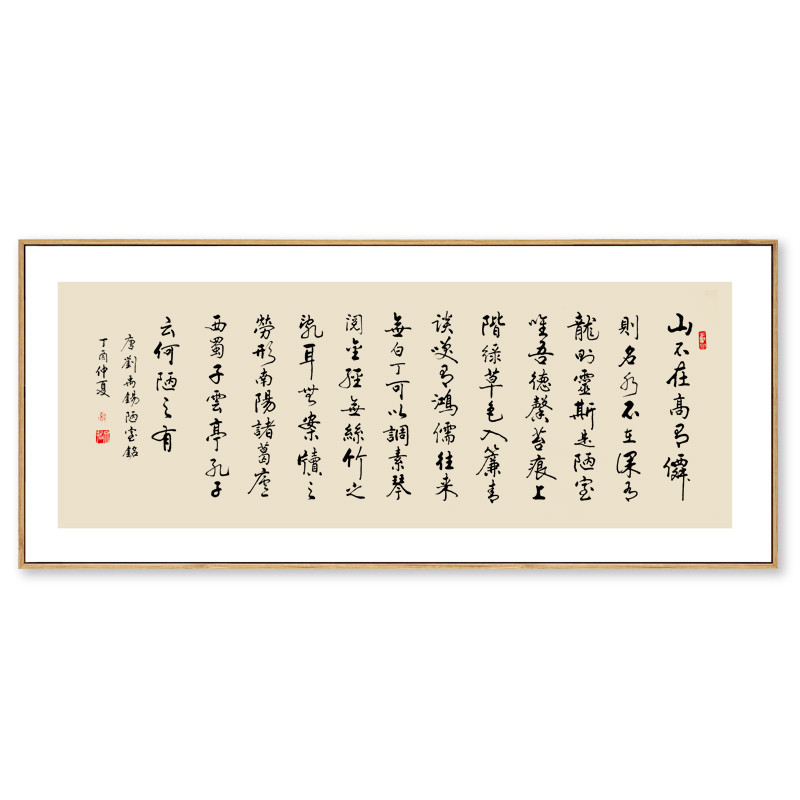 山不在高有僊
則名水不在深有
龍則靈斯是陋室
唯吾德馨苔痕上
階綠草色入簾青
談笑有鴻儒往来
無白丁可以調素琴
閱金經無絲竹之
亂耳無案牘之
勞形南陽諸葛廬
西蜀子雲亭孔子
云何陋之有
唐劉禹錫陋室銘
丁酉仲夏